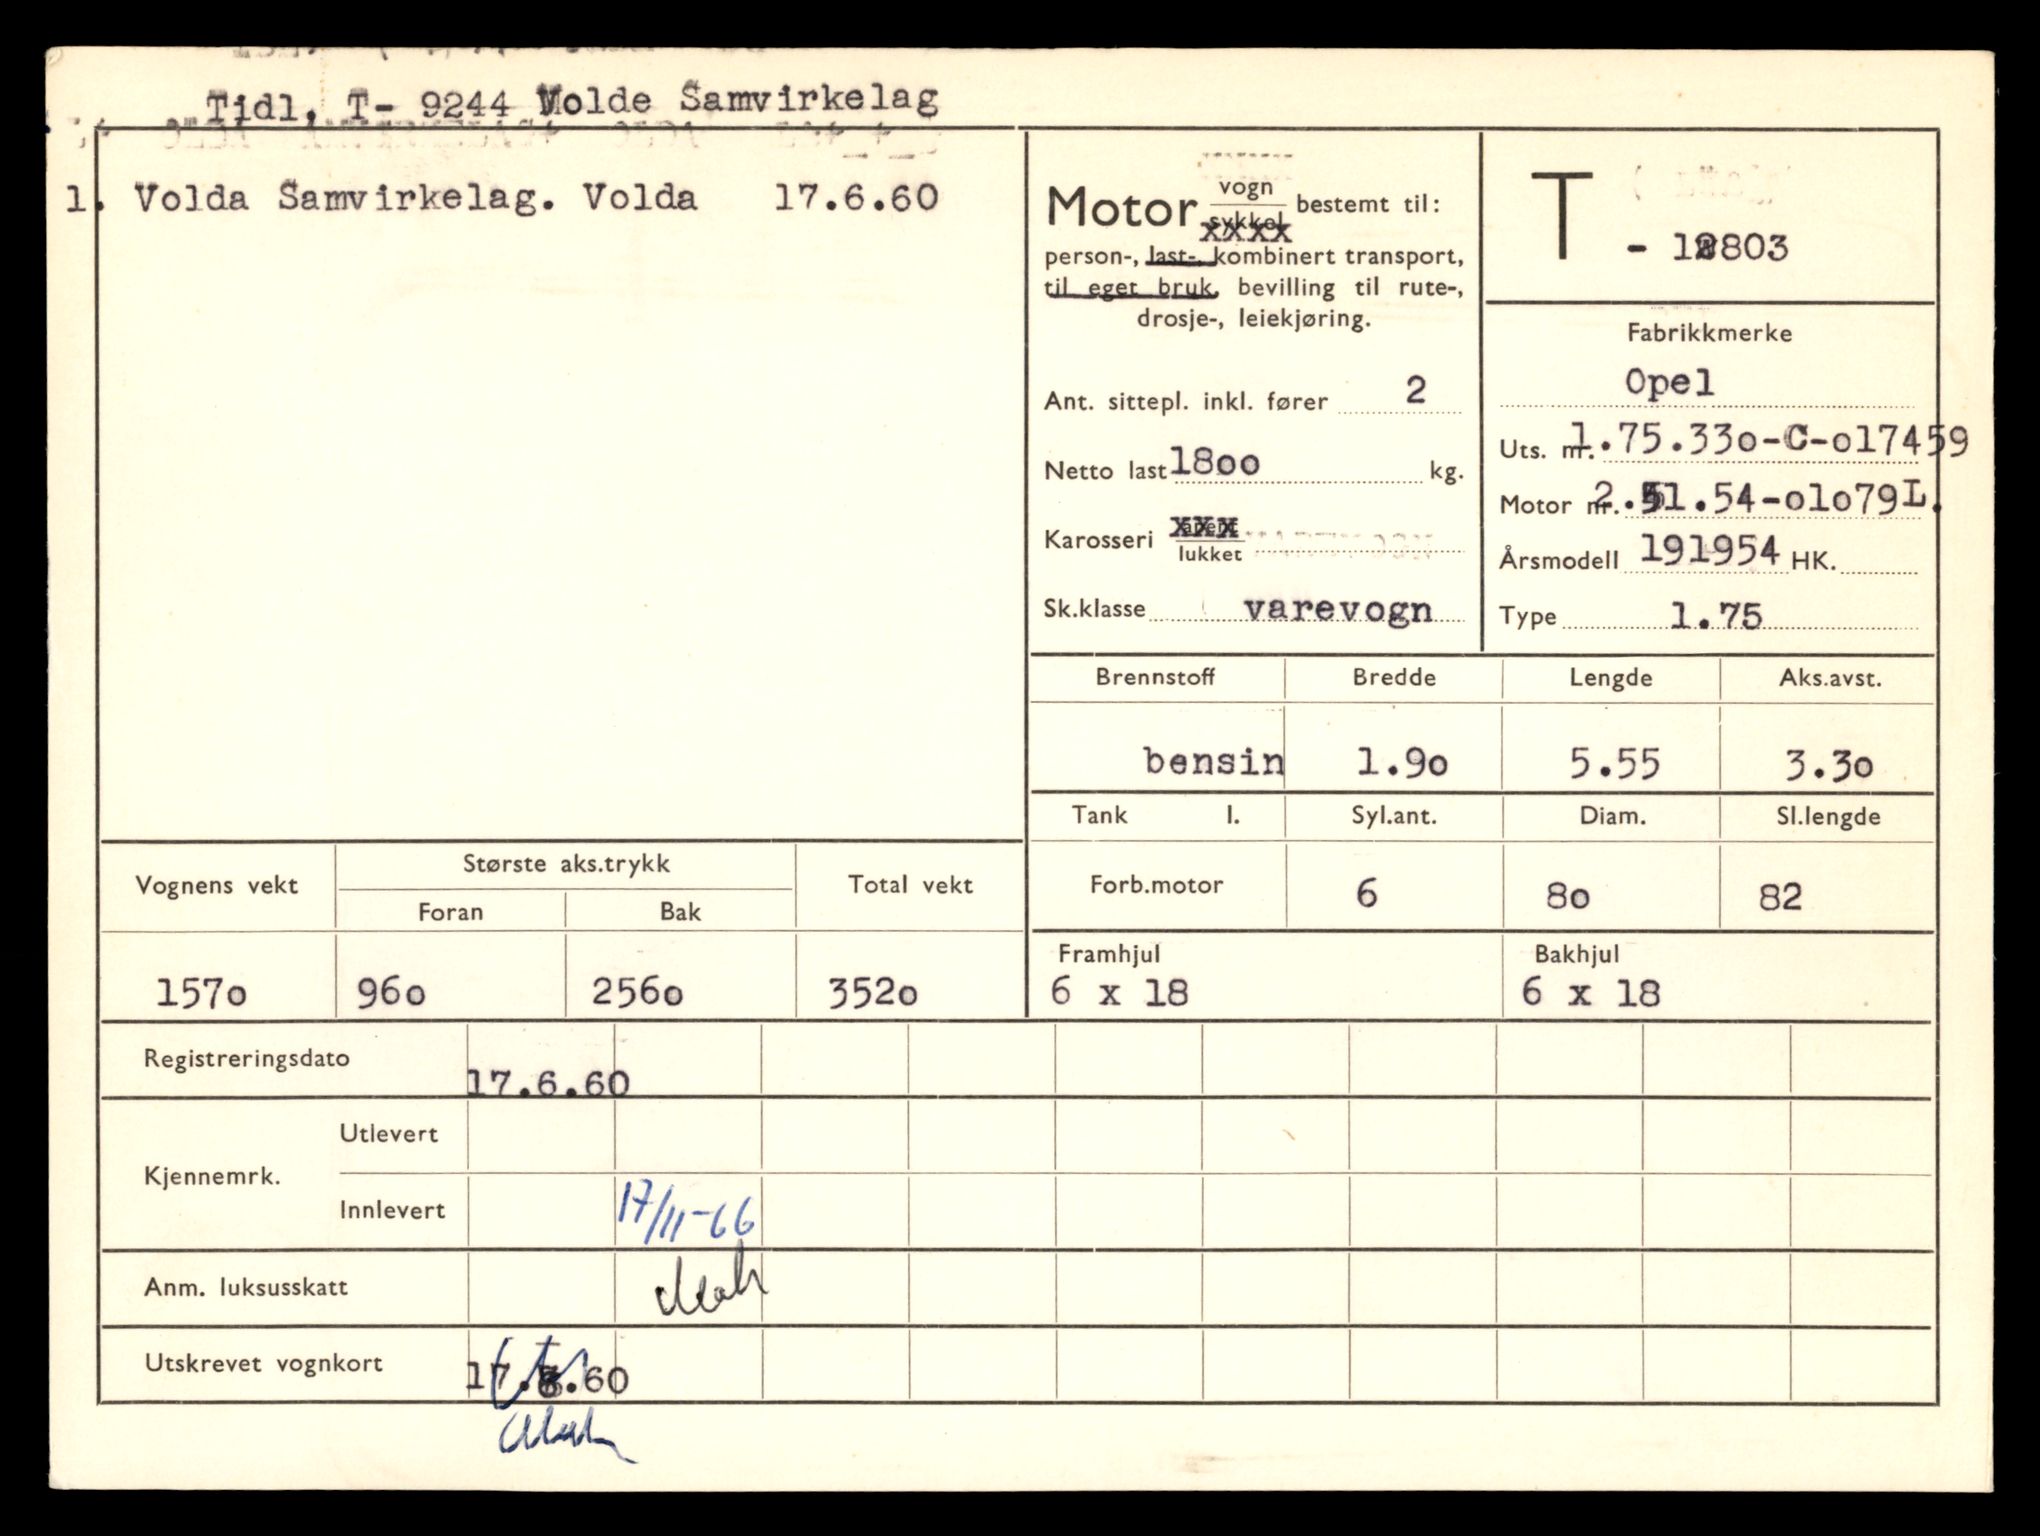 Tidl, T- 9244 Molde Samvirkelag
1. Volda Samvirkelag. Volda 17.6.60
Motor vogn bestemt til:
sykkel
person-, last-, kombinert transport,
til eget bruk, bevilling til rute-,
drosje-, leiekjøring.
Ant. sittepl. inkl. fører 2
Netto last 18oo kg.
Karosseri xxx
lukket
Sk.klasse varevogn
T
Fabrikkmerke
Opel
Uts. nr. 1.75.33o-C-o17459
Motor nr. 2.51.54-o1o79L.
Årsmodell 191954 HK.
Type 1.75
Brennstoff Bredde Lengde Aks.avst.
bensin 1.9o 5.55 3.3o
Tank l. Syl.ant. Diam. Sl.lengde
Forb.motor 6 8o 82
Framhjul Bakhjul
6 x 18 6 x 18
Vognens vekt Største aks.trykk Total vekt
Foran Bak
157o 96o 256o 352o
Registreringsdato 17.6.60
Kjennemrk. Utlevert
Innlevert 17/11-66
Anm. luksusskatt
Utskrevet vognkort 17.6.60